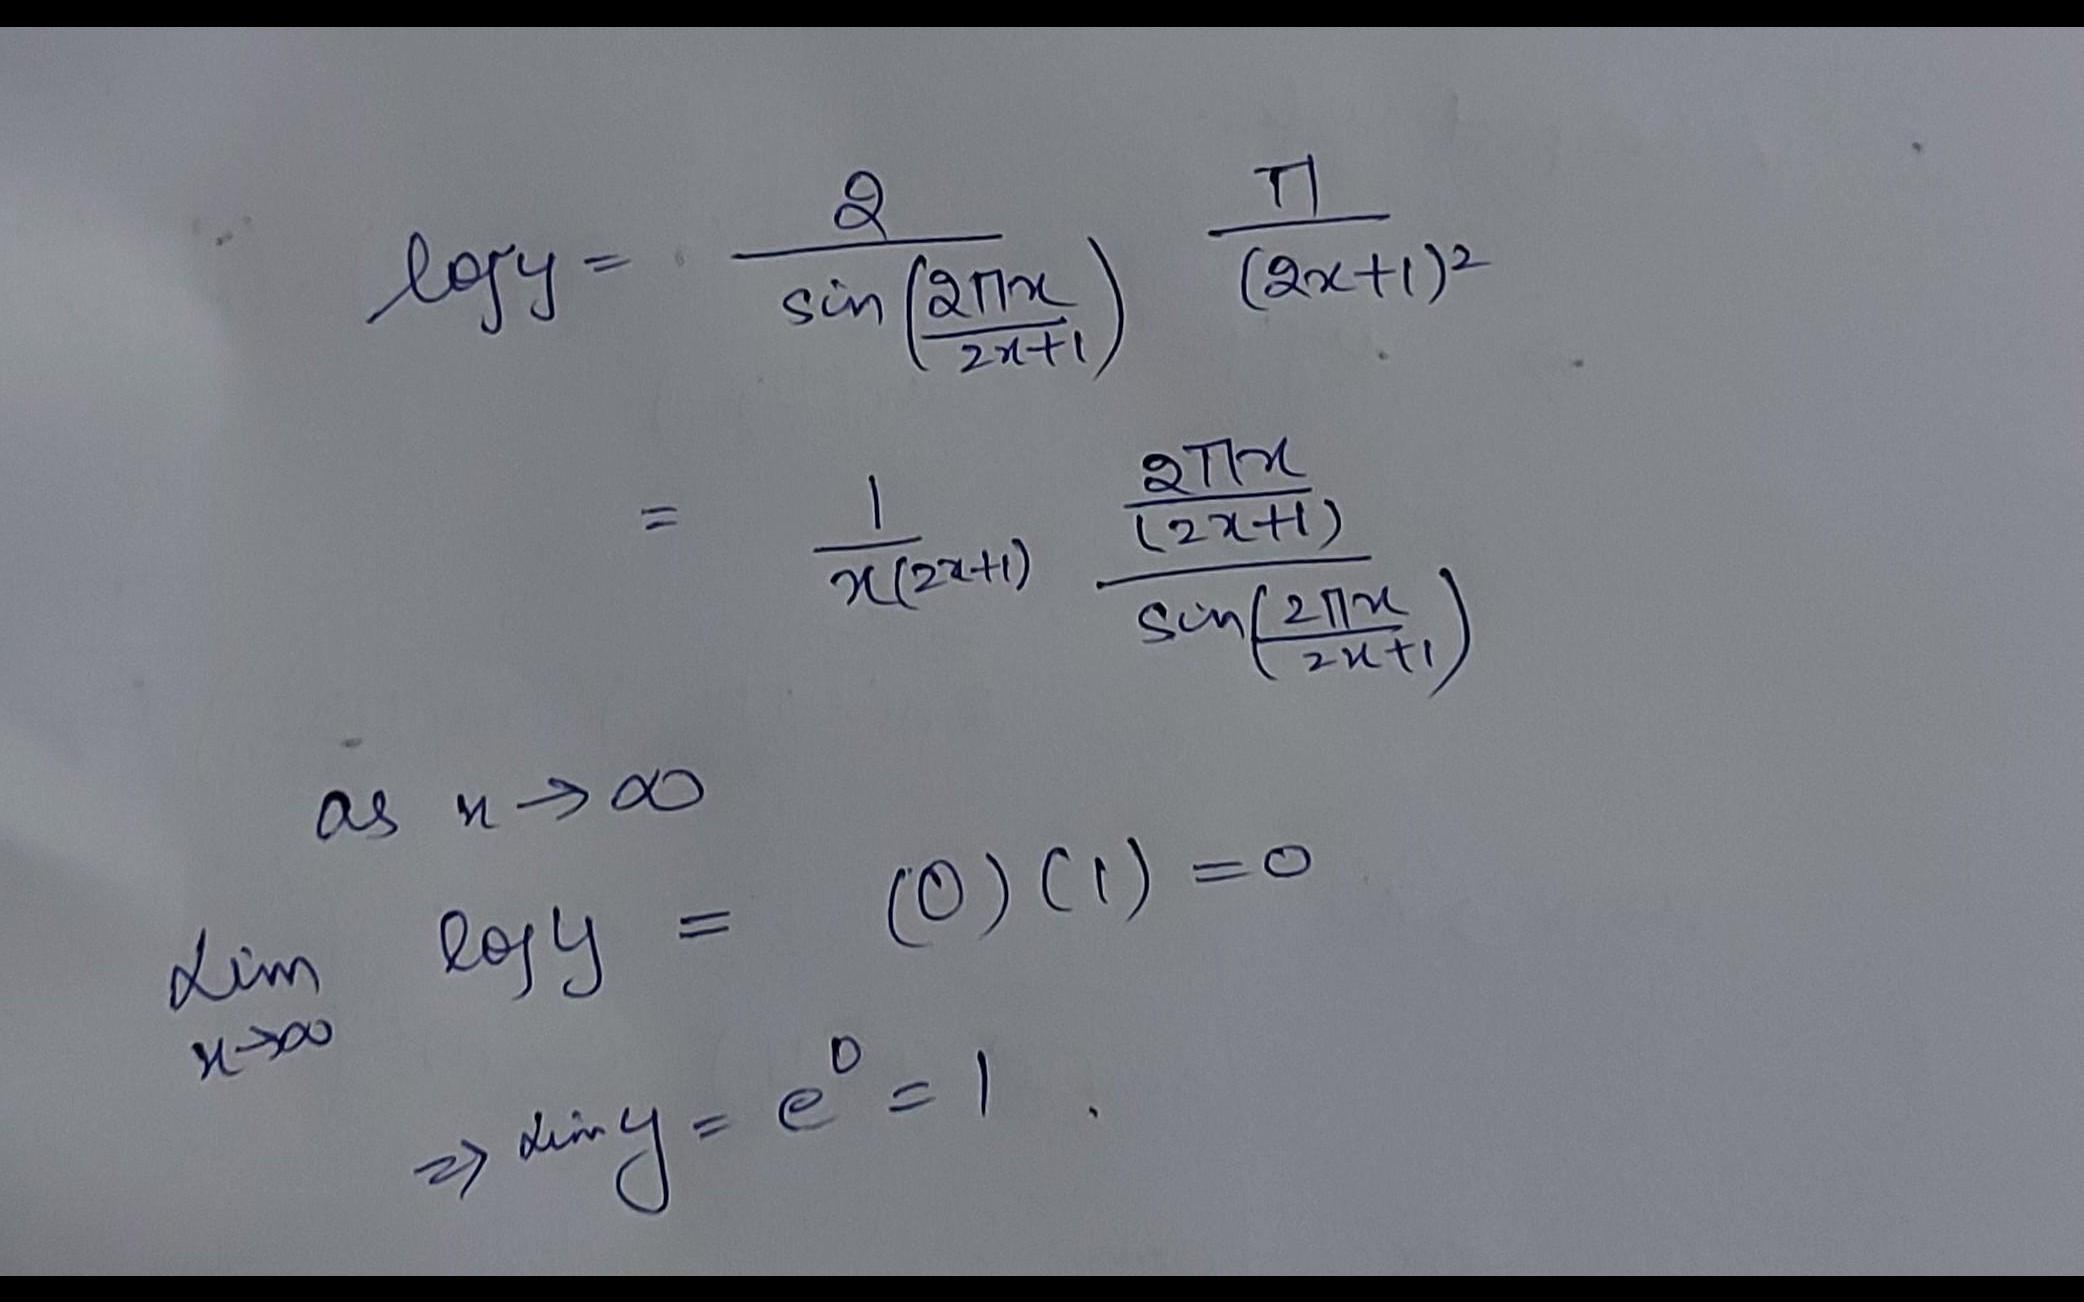 log y = 2/sin(2πx/2x+1) π/(2x+1)²
= 1/x(2x+1) (2πx/(2x+1))/sin(2πx/2x+1)
as x → ∞
Lim x→∞ log y = (0) (1) = 0
⇒ Lim y = e⁰ = 1 .